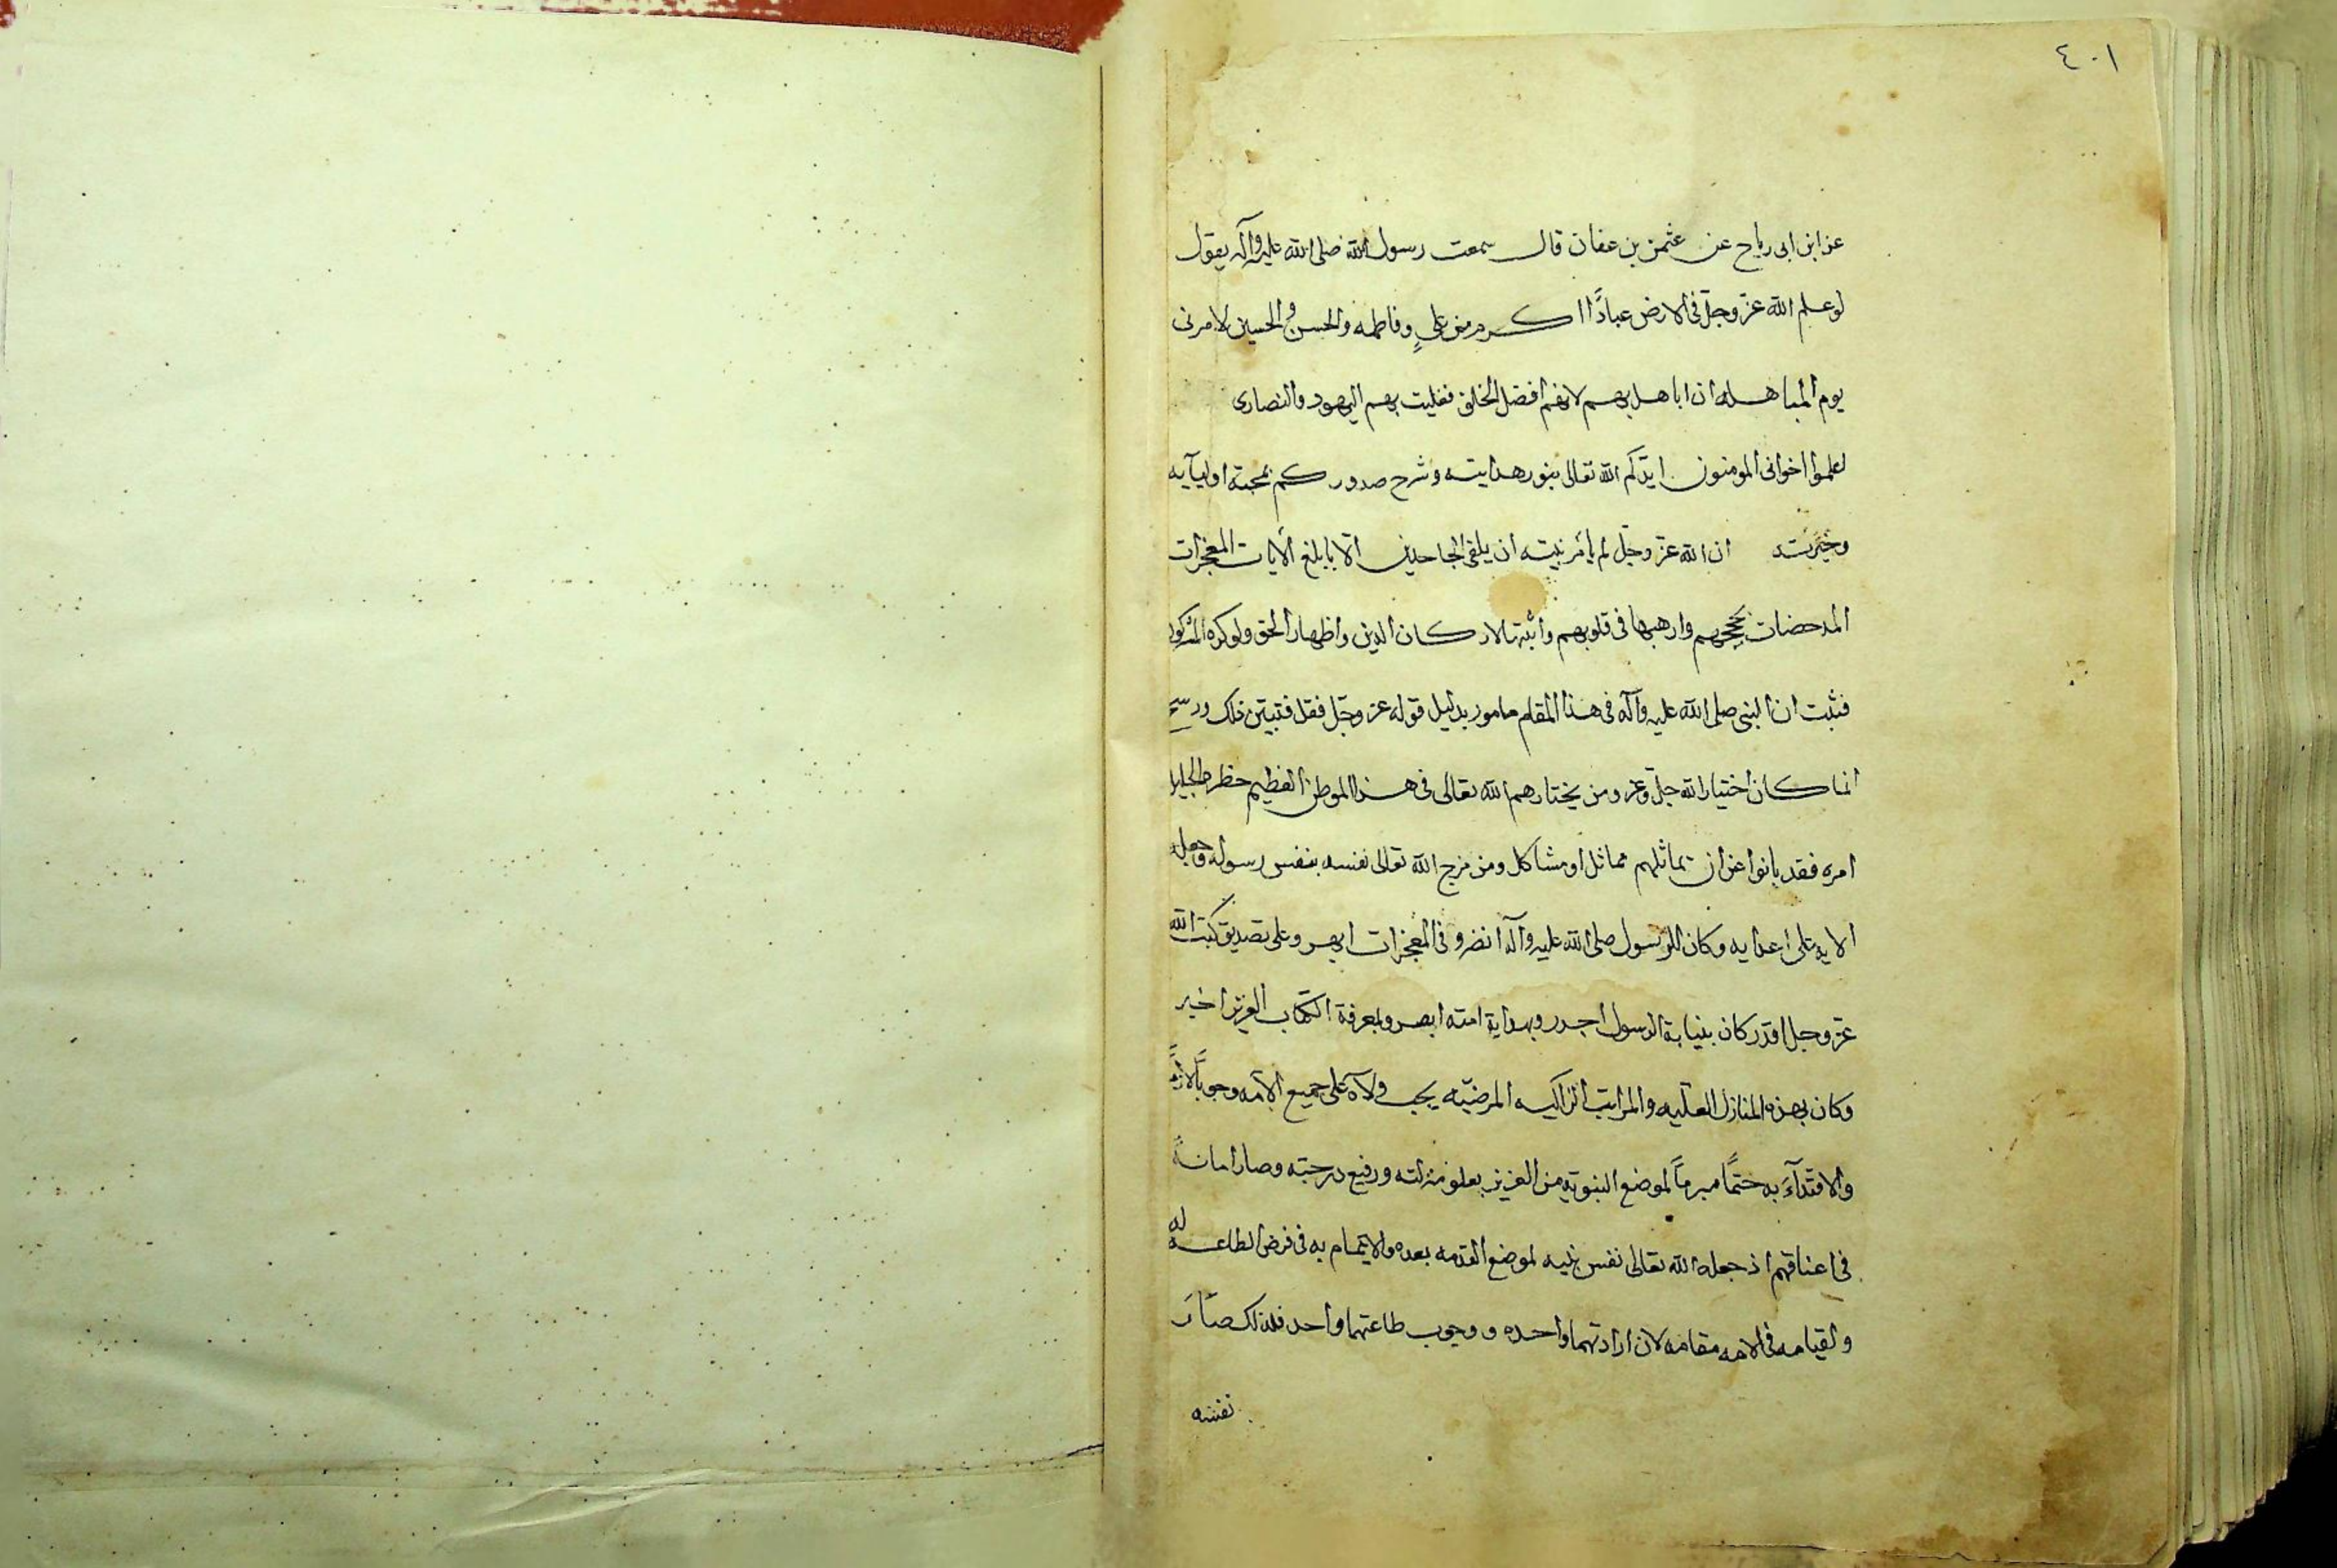 ٤٠١
عن ابن ابى رباح عن عثمن بن عفان قال سمعت رسول الله صلى الله عليه وآله يقول
لو علم الله عزّ وجلّ فى الارض عبادًا اكرم من علىٍ وفاطمه والحسن والحسين لامرنى
يوم المباهله ان اباهل بهم لانهم افضل الخلق فغلبت بهم اليهود والنصارى
اعلموا اخوانى المومنون ايّدكم الله تعالى بنور هدايته وشرح صدوركم بمحبة اوليآيه
ان الله عزّ وجلّ لم يأمر نبيّه ان يلقى الجاحدين الّا بابلغ الايات المعجزات
المدحضات بحججهم وارهبها فى قلوبهم واثبتها لاركان الدين واظهار الحق ولو كره المشركون
فثبت ان النبى صلى الله عليه وآله فى هذا المقام مامور بدليل قوله عز وجلّ فقل فتبيّن ذلك
انما كان اختيار الله جلّ وعزّ ومن يختارهم الله تعالى فى هذا الموطن العظيم خطره الجليل
امره فقد بانوا عن ان يماثلهم مماثل او مشاكل ومن مزج الله تعالى نفسه بنفس رسوله وجعله
الاية على اعدايه وكان للرسول صلى الله عليه وآله انضر و فى المعجزات ابهر وعلى تصديق كتب الله
عزّ وجل اقدر كان بنيابة الرسول اجدر وبهداية امته ابصر وبمعرفة الكتاب العزيز اخبر
وكان بهذه المنازل العليه والمراتب الزاكيه المرضيّه يجب ولآه على جميع الامه وجوبًا لازمًا
والاقتدآء به حتمًا مبرمًا لموضع النبوّة من العزيز بعلو منزلته ورفيع درجته وصار امانةً
فى اعناقهم اذ جعله الله تعالى نفس نبيه لموضع القدمه بعده والايتمام به فى فرض الطاعه له
والقيامه فى الامه مقامه لان ارادتهما واحده و وجوب طاعتهما واحد فلذلك صار
نفسه